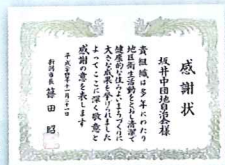 感謝状
坂井中団地自治会様
貴組織は多年にわたり
地区衛生活動をとおし清潔で
健康的な住みよいまちづくりに
大きな成果を挙げられました
よってここに深く敬意と
感謝の意を表します
平成二十四年十一月二十一日
新潟市長 篠田昭